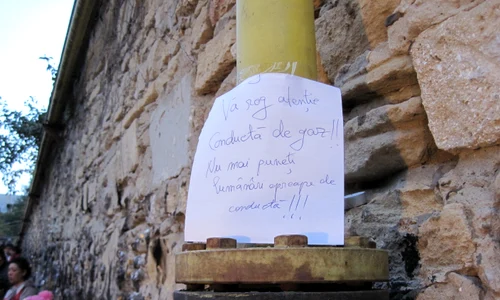 Vă rog atenție
Conductă de gaz!!
Nu mai puneți
lumânări aproape de
conductă!!!